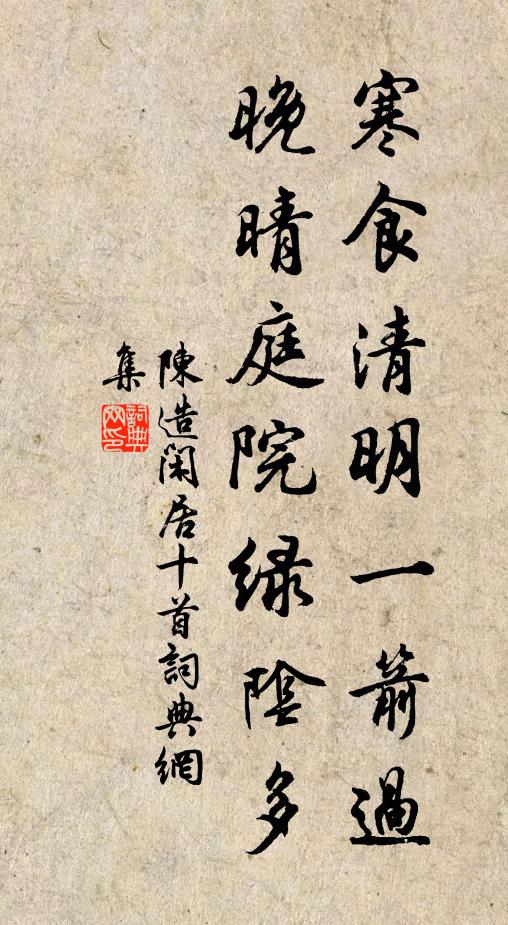 寒食清明一箭過
晚晴庭院緑陰多
陳造閑居十首詞典網
集
詞典網印